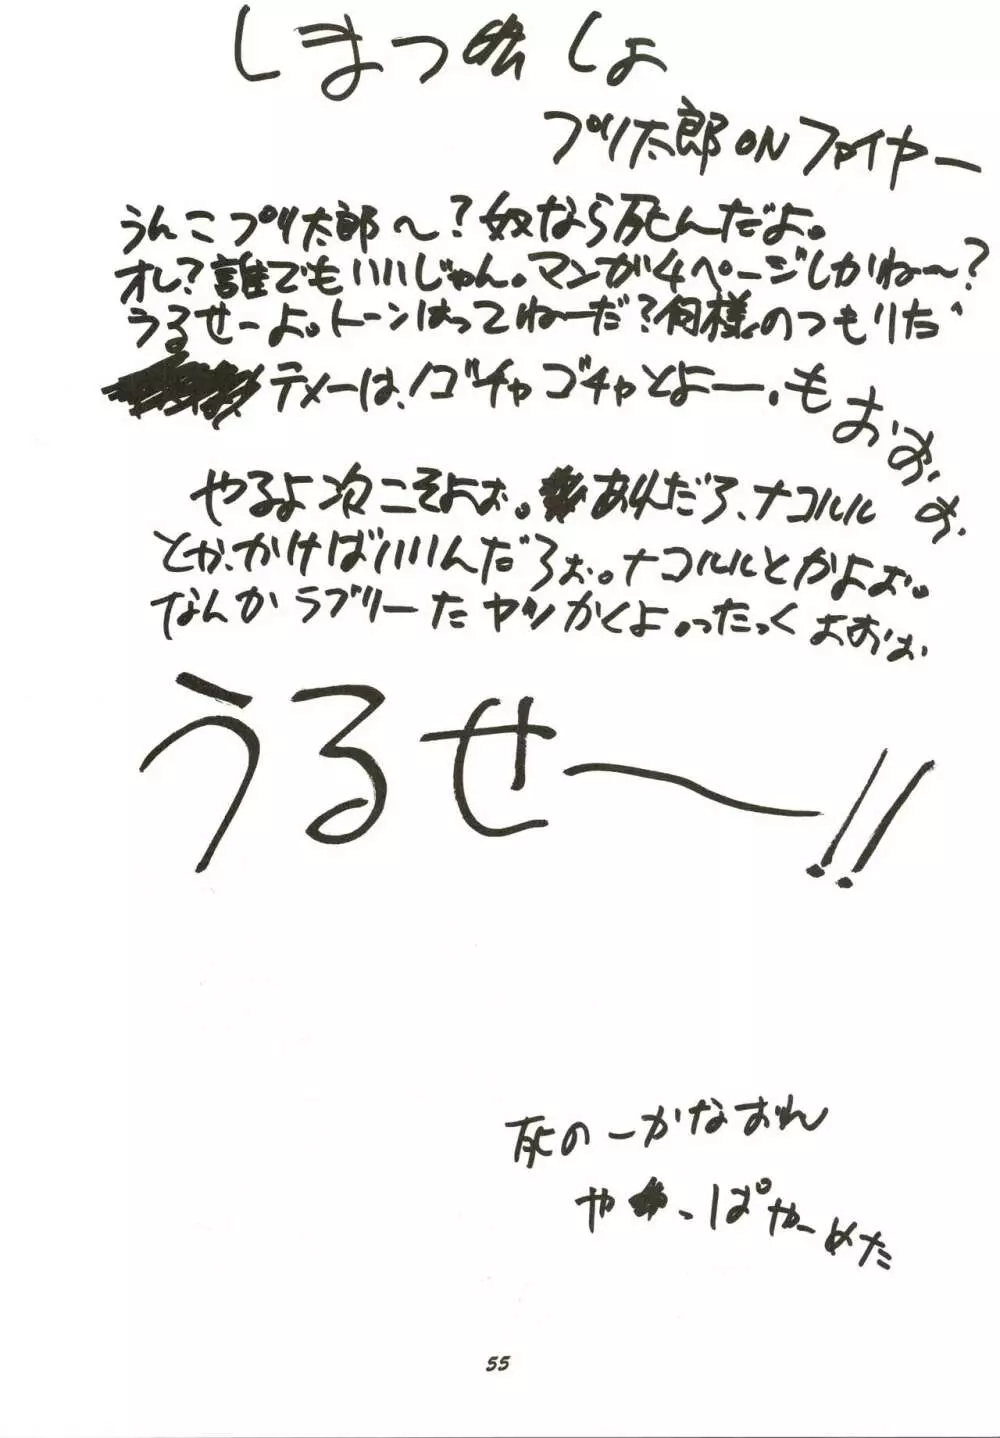 しまつ しょ
プリ太郎ONファイヤー
うんこプリ太郎〜?奴なら死んだよ。
オレ?誰でもいいじゃん。マンガ4ページしかね〜?
うるせーよ。トーンはってねーだ?何様のつもりだ
テメーは!ゴチャゴチャとよー。もおおお
やるよ次こそよぉ。あれだろ、ナコルル
とか、かけばいいんだろぉ。ナコルルとかよぉ。
なんかラブリーなヤツかくよ。ったくよおおぉ
うるせ〜!!
死のーかなおれ
やっぱやーめた
55